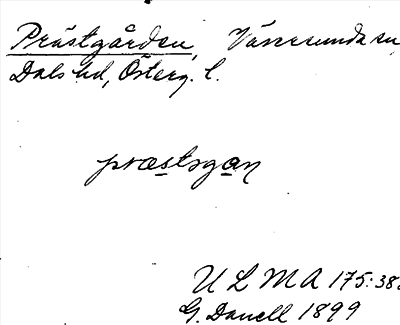 Prästgården, Väversunda sn
Dals hd, Österg. l.
præstsgan
U L M A 175:38
G. Danell 1899